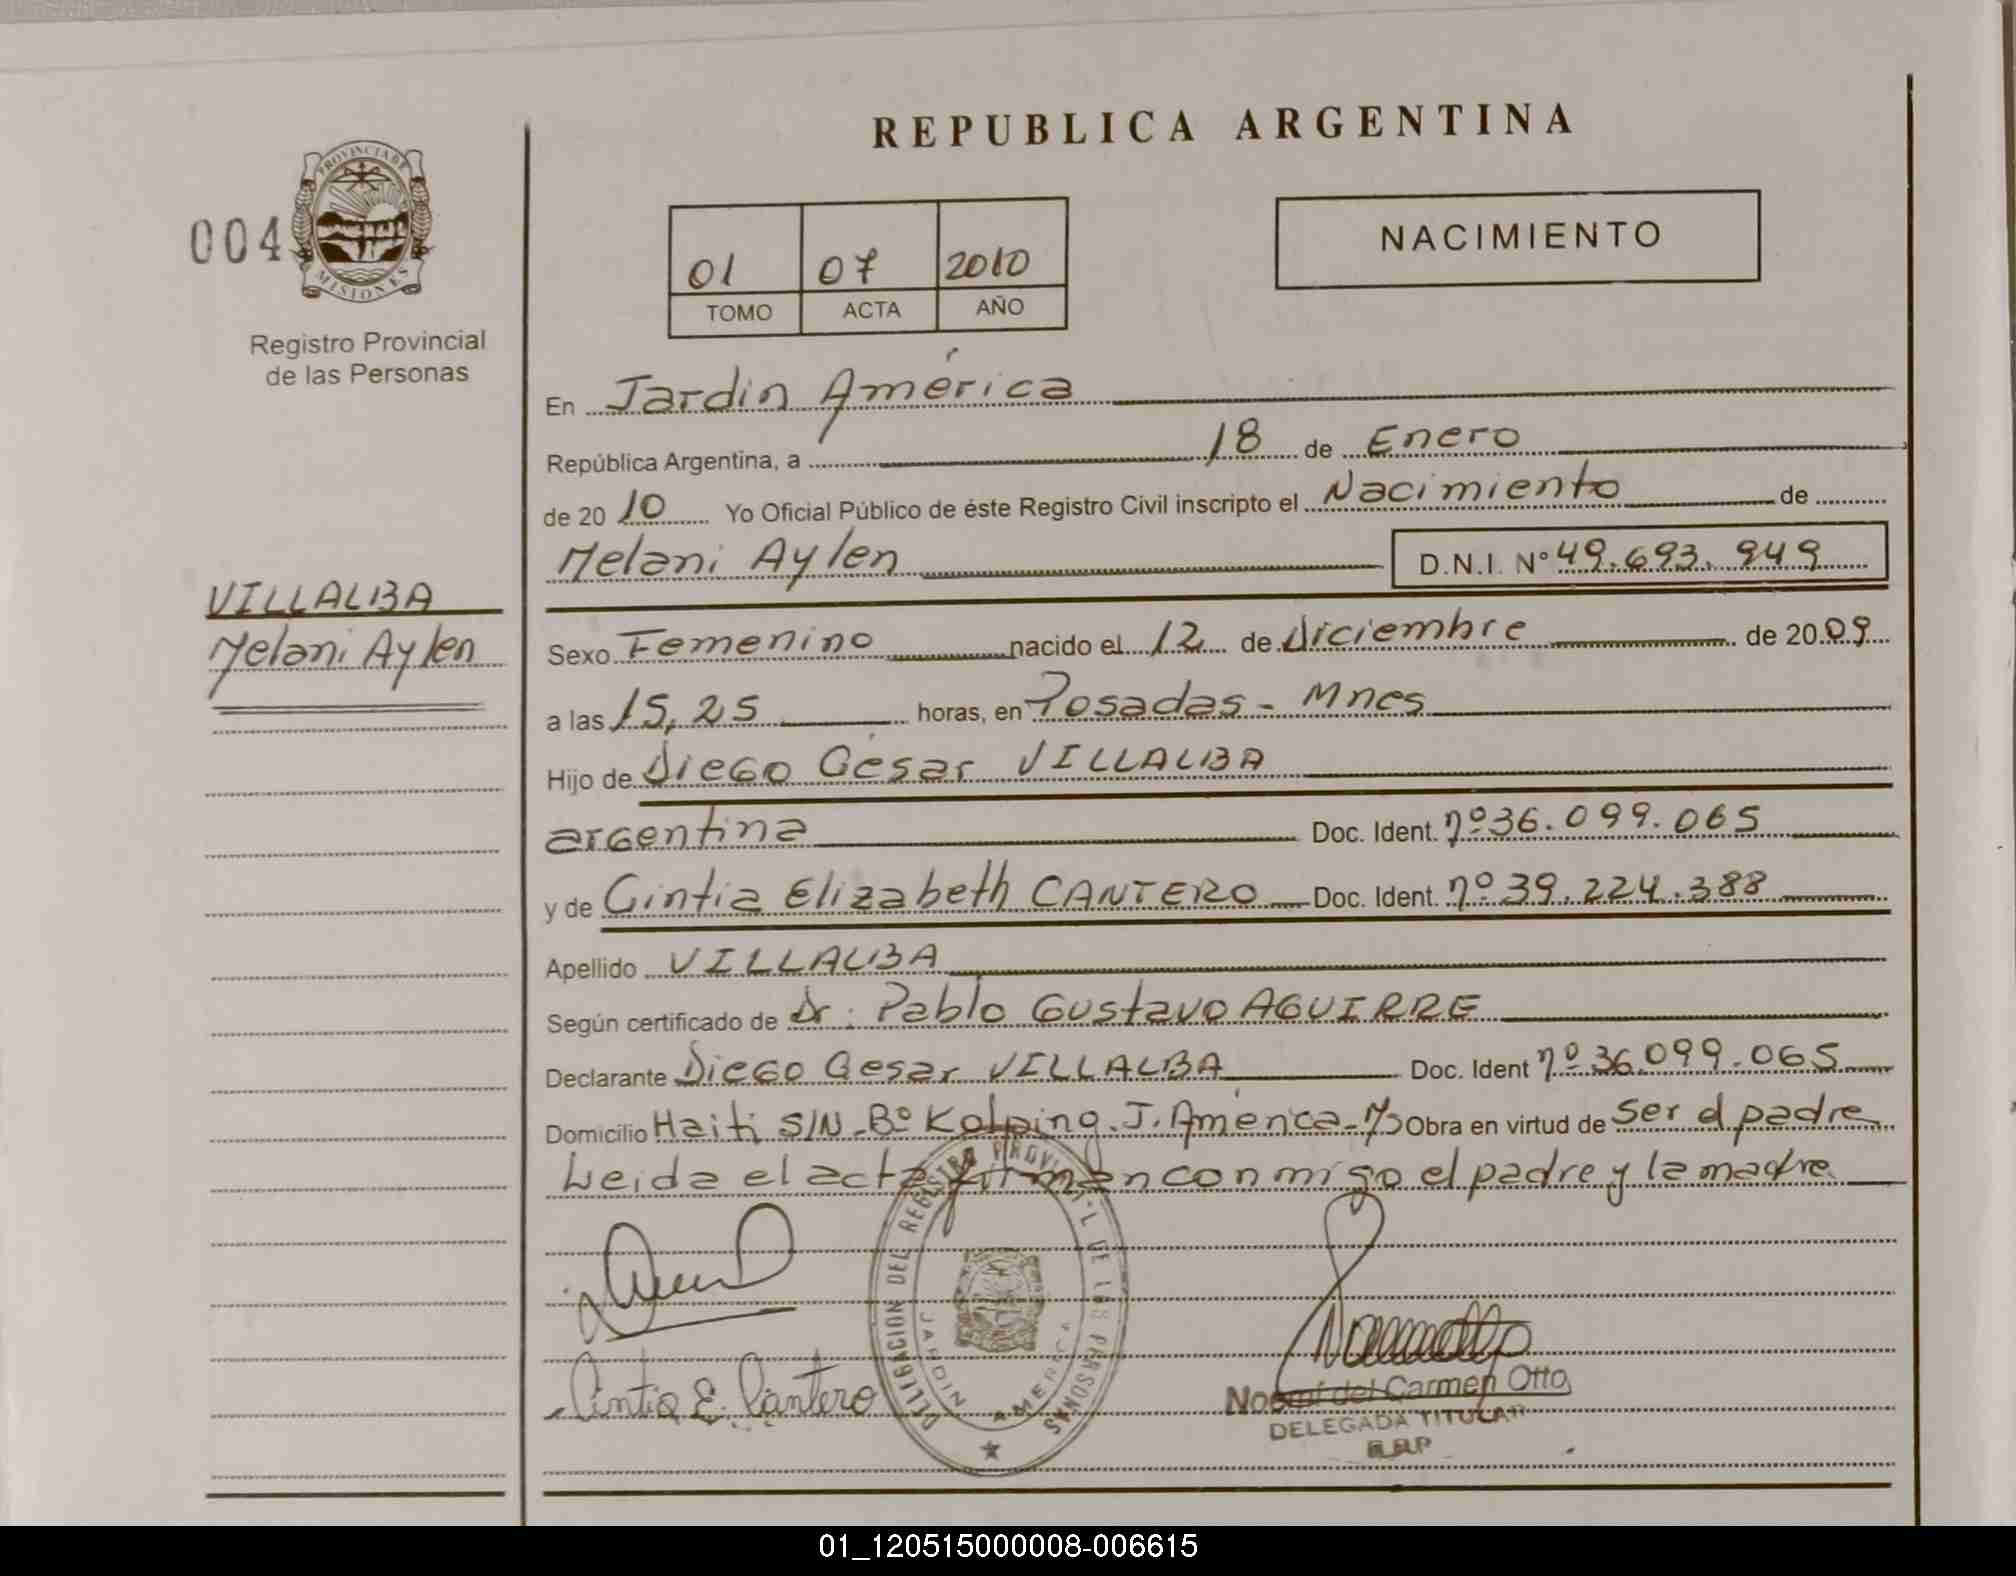 REPUBLICA ARGENTINA
004
PROVINCIA DE
MISIONES
Registro Provincial
de las Personas
01 07 2010
TOMO ACTA AÑO
NACIMIENTO
En Jardin América
República Argentina, a 18 de Enero
de 20 10 Yo Oficial Público de éste Registro Civil inscripto el Nacimiento de
Melani Aylen D.N.I. Nº 49.693.949
VILLALBA
Melani Aylen
Sexo Femenino nacido el 12 de Diciembre de 20 09
a las 15,25 horas, en Posadas - Mnes
Hijo de Diego César VILLALBA
argentina Doc. Ident. nº 36.099.065
y de Cintia Elizabeth CANTERO Doc. Ident. nº 39.224.388
Apellido VILLALBA
Según certificado de Dr. Pablo Gustavo AGUIRRE
Declarante Diego Cesar VILLALBA Doc. Ident nº 36.099.065
Domicilio Haiti S/N - Bº Kolping. J. América - Ms Obra en virtud de ser el padre
Leida el acta firman conmigo el padre y la madre
DELEGACION DEL REGISTRO PROVINCIAL DE LAS PERSONAS
JARDIN AMERICA
Cintia E. Cantero
Noemí del Carmen Otto
DELEGADA TITULAR
R.R.P
01_120515000008-006615